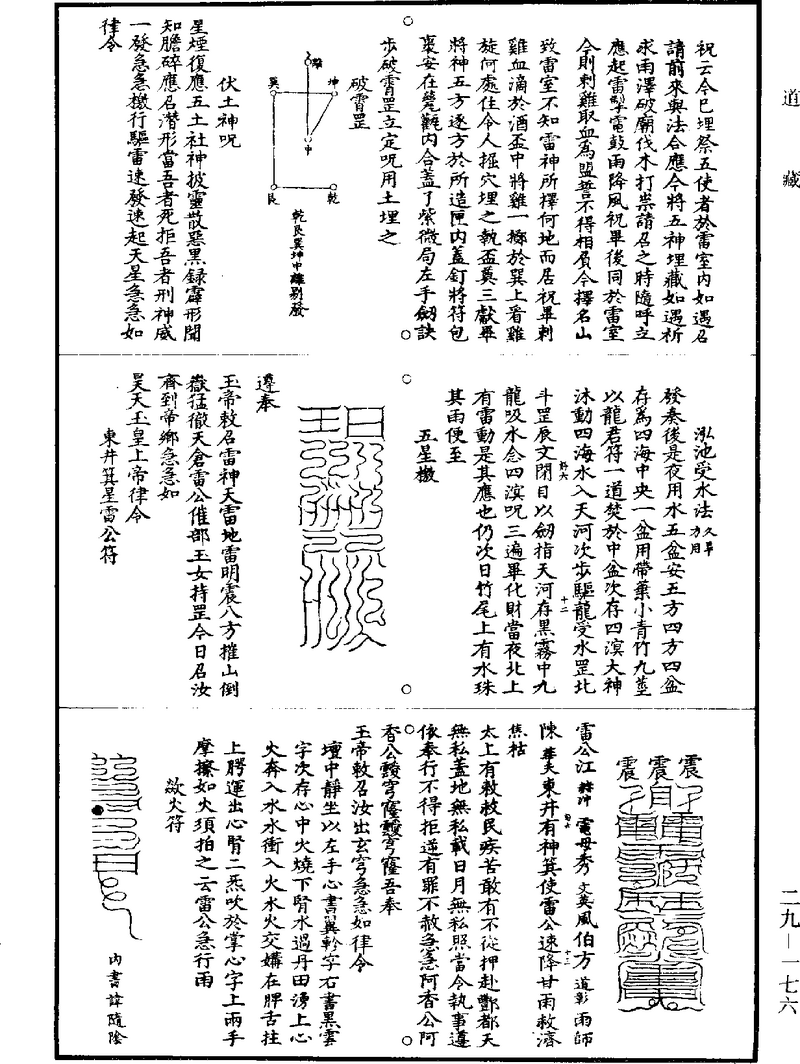 道藏
祝云今巳埋祭五使者於雷室內如遇召
請前來與法合應今將五神埋藏如遇祈
求雨澤破廟伐木打祟請召之時隨呼立
應起雷掣電鼓雨降風祝畢後同於雷室
令則刺雞取血為盟誓不得相負令擇名山
致雷室不知雷神所擇何地而居祝畢刺
雞血滴於酒盃中將雞一擲於巽上看雞
旋何處住令人掘穴埋之執盃奠三獻畢
將神五方逐方於所造匣內蓋釘將符包
裹安在甕甀內合蓋了紫微局左手劒訣
步破霄罡立定呪用土埋之
破霄罡
離
坤
巽
中
乾
艮
乾艮巽坤中離剔發
伏土神呪
星煙復應五土社神披靈散惡黑錄霹形聞
知膽碎應召潛形當吾者死拒吾者刑神威
一發急急檄行驅雷速發速起天星急急如
律令
泓池受水法久旱方用
發奏後是夜用水五盆安五方四方四盆
存為四海中央一盆用帶葉小青竹九莖
以龍君符一道焚於中盆次存四溟大神
沐動四海水入天河次步驅龍受水罡北
斗罡辰文閉目以劒指天河存黑霧中九
龍吸水念四溟呪三遍畢化財當夜北上
有雷動是其應也仍次日竹尾上有水珠
其雨便至
五星檄
遵奉
玉帝敕召雷神天雷地雷明震八方摧山倒
嶽猛徹天倉雷公催部玉女持罡今日召汝
齊到帝鄉急急如
昊天玉皇上帝律令
東井箕星雷公符
震震震
雷公江赫冲電母秀文英風伯方道彰雨師
陳華夫東井有神箕使雷公速降甘雨救濟
焦枯
太上有敕救民疾苦敢有不從押赴酆都天
無私蓋地無私載日月無私照當今執事遵
依奉行不得拒逆有罪不赦急急阿香公阿
香公
玉帝敕召汝出玄穹急急如律令
壇中靜坐以左手心書翼軫字右書黑雲
字次存心中火燒下腎水過丹田湧上心
火奔入水水衝入火水火交媾在脾舌拄
上腭運出心腎二炁吹於掌心字上兩手
摩擦如火須拍之云雷公急行雨
歘火符
內書諱隨陰
二九—一七六